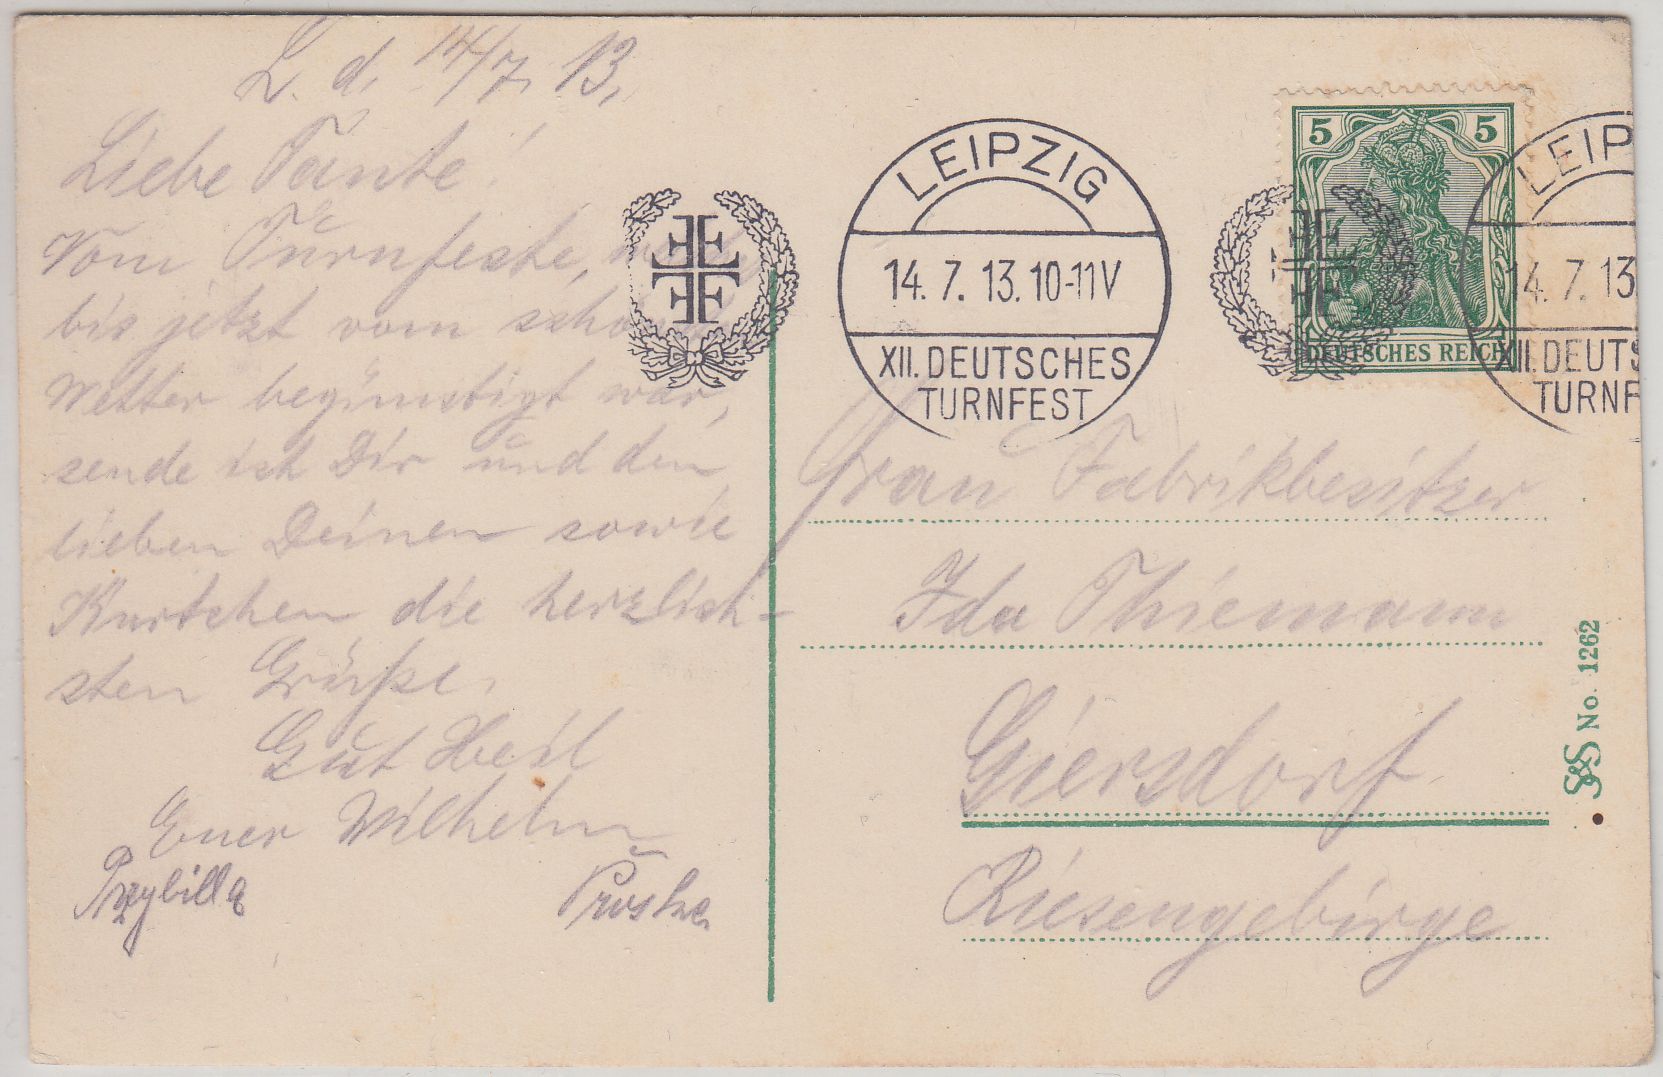 L. d. 14/7. 13.
Liebe Tante!
Vom Turnfeste,
bis jetzt vom
Wetter begünstigt war,
sende ich Dir und den
lieben Deinen sowie
Kurtchen die herzlich-
sten Grüße.
Gut Heil
Euer Wilhelm
Przybilla
Pruske
LEIPZIG
14. 7. 13. 10-11V
XII. DEUTSCHES
TURNFEST
5 5
DEUTSCHES REICH
LEIP
14. 7. 13
XII. DEUTS
TURNF
Frau Fabrikbesitzer
Ida Thiemann
Giersdorf
Riesengebirge
S&S No. 1262